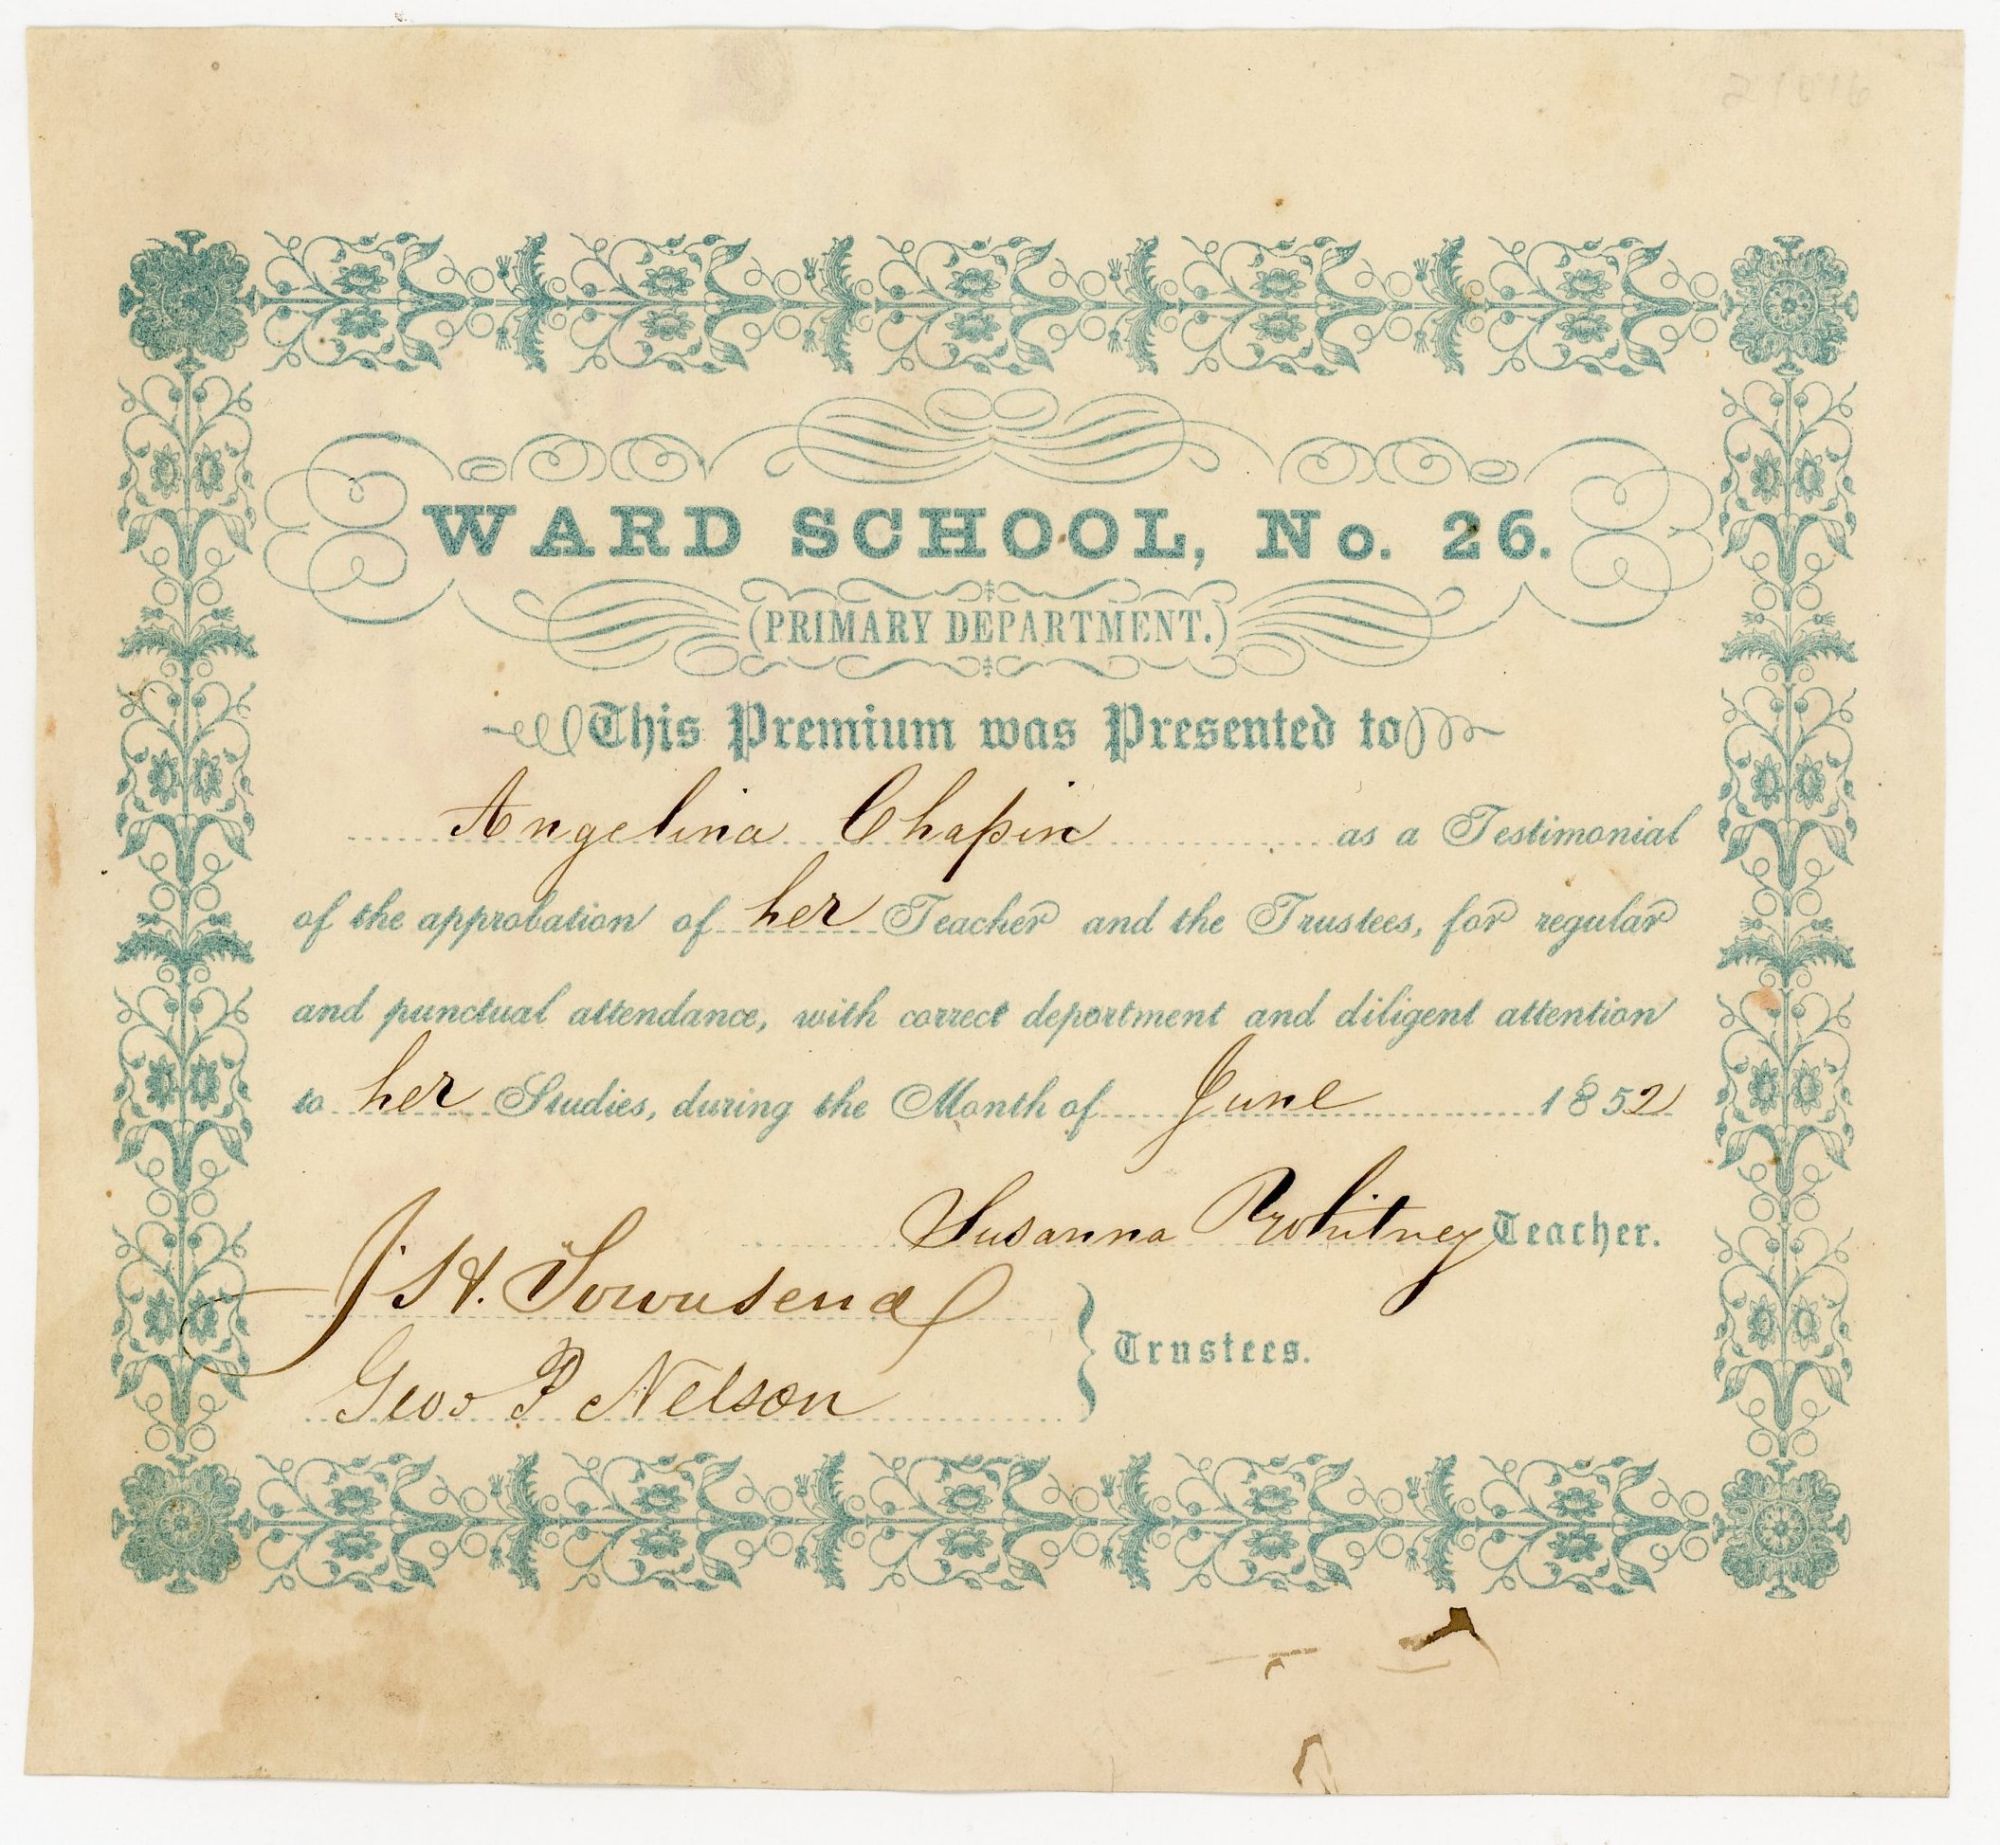 WARD SCHOOL, No. 26.
(PRIMARY DEPARTMENT.)
This Premium was Presented to
Angelina Chapin as a Testimonial
of the approbation of her Teacher and the Trustees, for regular
and punctual attendance, with correct deportment and diligent attention
to her Studies, during the Month of June 1852
Susanna Whitney Teacher.
J. H. Townsend
Trustees.
Geo. P Nelson